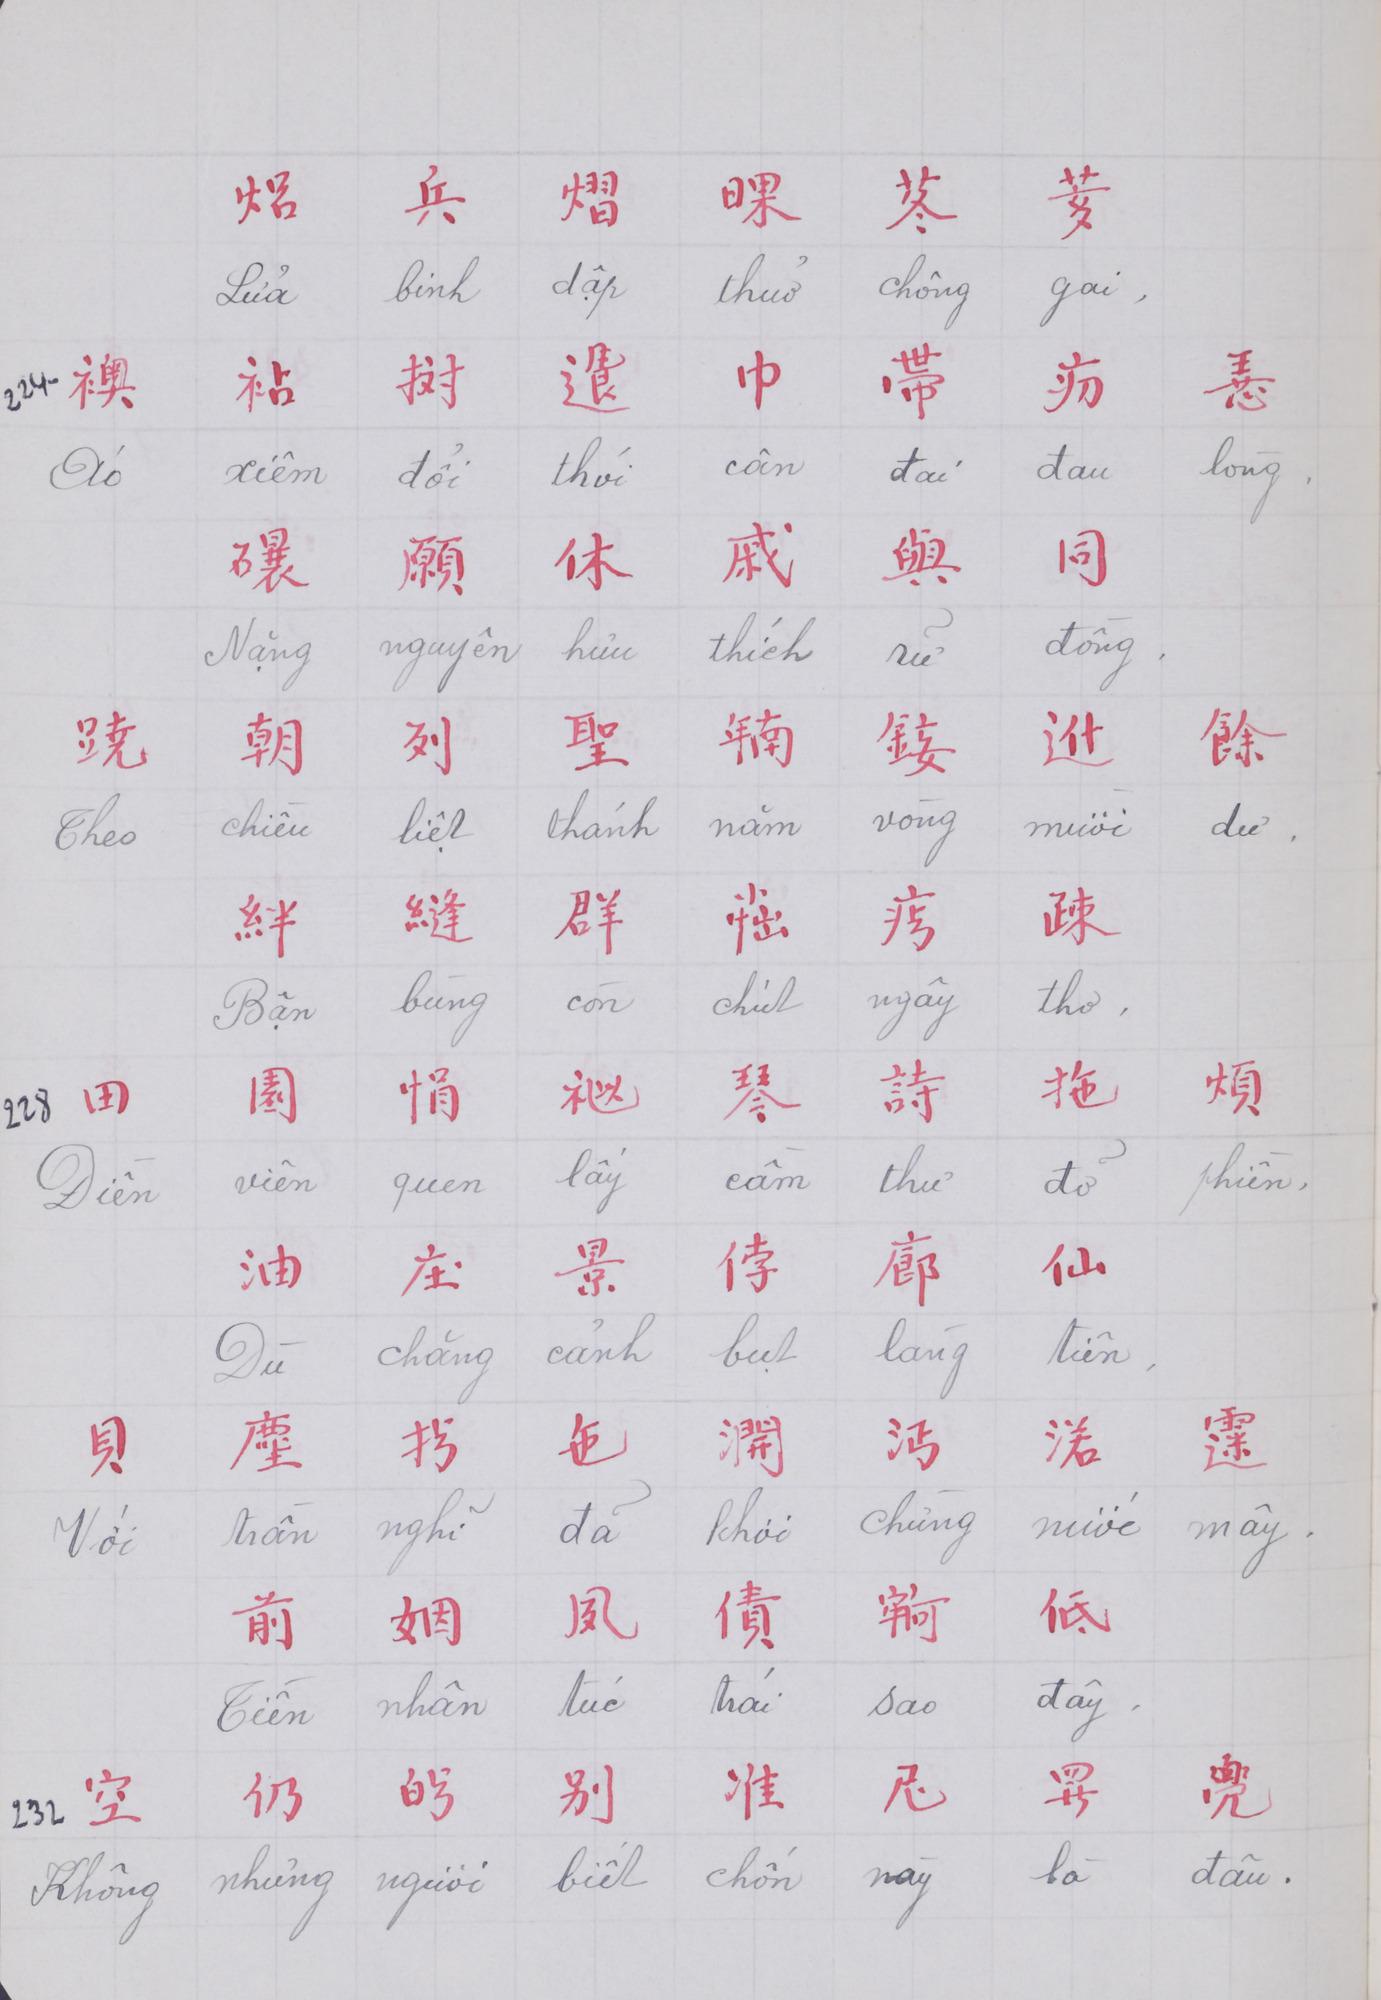 焒 兵 熠 䁨 苳 荄
Lửa binh dập thuở chông gai,
224- 襖 袩 𢭮 退 巾 帶 疠 𢚸
Áo xiêm đổi thới cân đai đau lòng,
曩 願 休 戚 與 同
Nặng nguyên hưu thích rử đồng,
蹺 朝 列 聖 𢆥 鋄 𨑮 餘
Theo chiều liệt thánh năm vòng mười dư,
絆 縫 群 𡮇 𤴬 疎
Bận bùng còn chút ngây thơ,
228 田 園 悁 𥙩 琴 詩 拖 煩
Điền viên quen lấy cầm thư đở phiền,
油 庄 景 侼 廊 仙
Dù chẳng cảnh bụt làng tiên,
貝 塵 𢪱 㐌 𣾺 沔 渃 𩄲
Với trần nghĩ đả khỏi chừng nước mây.
前 姻 夙 債 𡫡 低
Tiền nhân túc trái sao đây,
232 空 仍 𠊚 别 准 尼 𱺵 兠
Không những người biết chốn nầy là đâu.